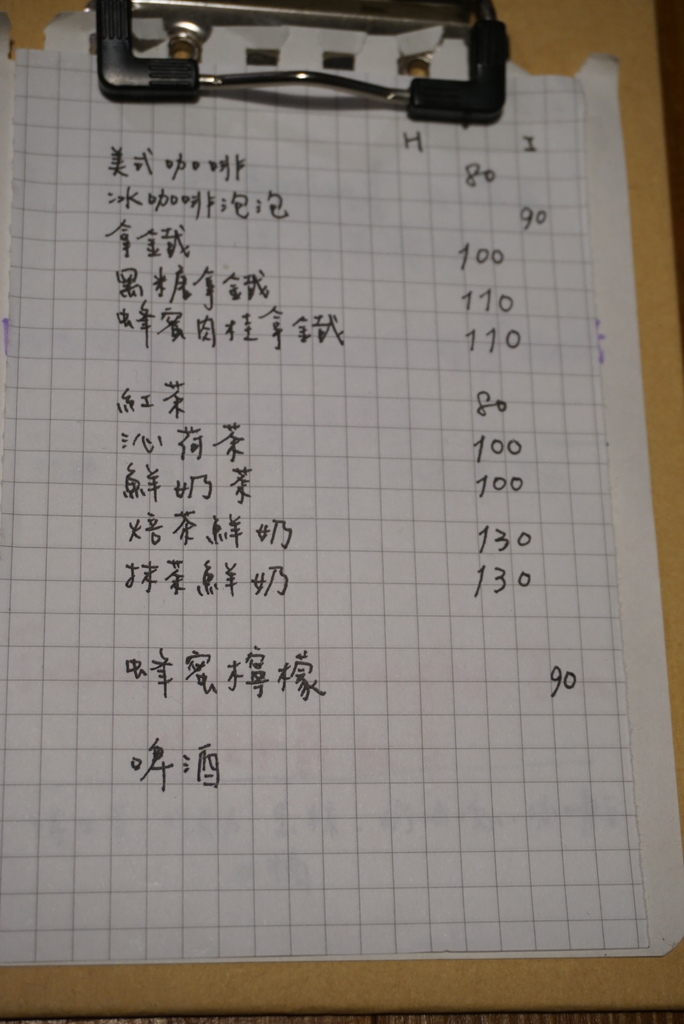 H I
美式咖啡 80
冰咖啡泡泡 90
拿鐵 100
黑糖拿鐵 110
蜂蜜肉桂拿鐵 110
紅茶 80
沁荷茶 100
鮮奶茶 100
焙茶鮮奶 130
抹茶鮮奶 130
蜂蜜檸檬 90
啤酒